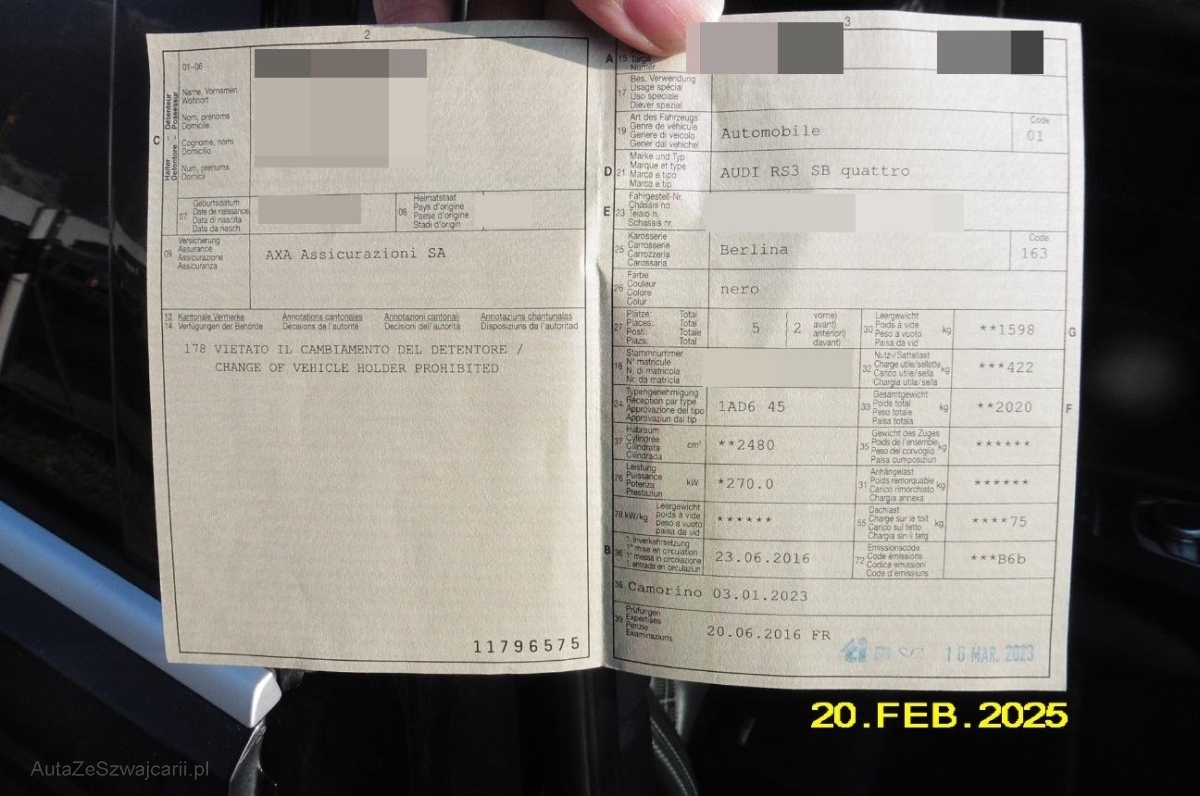 2
01-06
Halter - Détenteur
Detentore - Possessur
C
Name, Vornamen
Wohnort
Nom, prénoms
Domicile
Cognome, nomi
Domicilio
Num, prenums
Domicil
07
Geburtsdatum
Date de naissance
Data di nascita
Data da nasch.
08
Heimatstaat
Pays d'origine
Paese d'origine
Stadi d'origin
09
Versicherung
Assurance
Assicurazione
Assicuranza
AXA Assicurazioni SA
13 Kantonale Vermerke Annotations cantonales Annotazioni cantonali Annotaziuns chantunalas
14 Verfügungen der Behörde Décisions de l'autorité Decisioni dell'autorità Disposiziuns da l'autoritad
178 VIETATO IL CAMBIAMENTO DEL DETENTORE /
CHANGE OF VEHICLE HOLDER PROHIBITED
11796575
3
A 15 Targa
Numer
17
Bes. Verwendung
Usage spécial
Uso speciale
Diever spezial
19
Art des Fahrzeugs
Genre de véhicule
Genere di veicolo
Gener dal vehichel
Automobile
Code
01
D 21
Marke und Typ
Marque et type
Marca e tipo
Marca e tip
AUDI RS3 SB quattro
E 23
Fahrgestell-Nr.
Châssis no
Telaio n.
Schassis nr.
25
Karosserie
Carrosserie
Carrozzeria
Carossaria
Berlina
Code
163
26
Farbe
Couleur
Colore
Colur
nero
27
Plätze: Total
Places: Total
Posti: Totale
Plazs: Total
5
2
vorne)
avant)
anteriori)
davant)
30
Leergewicht
Poids à vide
Peso a vuoto
Paisa da vid
kg
**1598
G
18
Stammnummer
N° matricule
N. di matricola
Nr. da matricla
32
Nutz-/Sattellast
Charge utile/sellette
Carico utile/sella
Chargia utila/sella
kg
***422
24
Typengenehmigung
Réception par type
Approvazione del tipo
Approvaziun dal tip
1AD6 45
33
Gesamtgewicht
Poids total
Peso totale
Paisa totala
kg
**2020
F
37
Hubraum
Cylindrée
Cilindrata
Cilindrada
cm³
**2480
35
Gewicht des Zuges
Poids de l'ensemble
Peso del convoglio
Paisa cumposiziun
kg
******
76
Leistung
Puissance
Potenza
Prestaziun
kW
*270.0
31
Anhängelast
Poids remorquable
Carico rimorchiato
Chargia annexa
kg
******
78 kW/kg
Leergewicht
poids à vide
peso a vuoto
paisa da vid
******
55
Dachlast
Charge sur le toit
Carico sul tetto
Chargia sin il tetg
kg
****75
B 36
1. Inverkehrsetzung
1re mise en circulation
1a messa in circolazione
1. entrada en circulaziun
23.06.2016
72
Emissionscode
Code émissions
Codice emissioni
Code d'emissiuns
***B6b
38 Camorino 03.01.2023
39
Prüfungen
Expertises
Perizie
Examinaziuns
20.06.2016 FR
16 MAR. 2023
20.FEB.2025
AutaZeSzwajcarii.pl